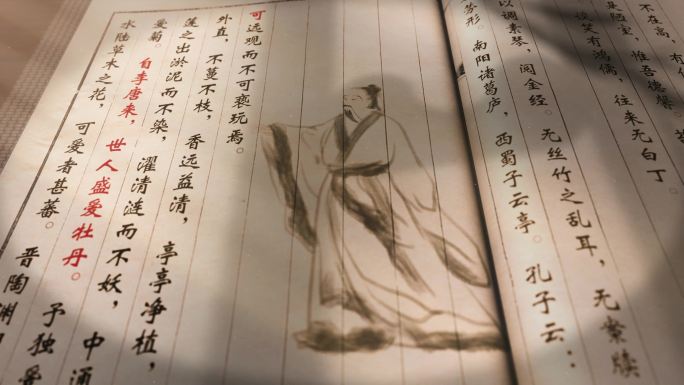 水陆草木之花，可爱者甚蕃。晋陶渊
爱菊。自李唐来，世人盛爱牡丹。予独爱
莲之出淤泥而不染，濯清涟而不妖，中通
外直，不蔓不枝，香远益清，亭亭净植，
可远观而不可亵玩焉。
不在高，有
是陋室，惟吾德馨。苔
谈笑有鸿儒，往来无白丁。
以调素琴，阅金经。无丝竹之乱耳，无案牍
劳形。南阳诸葛庐，西蜀子云亭。孔子云：